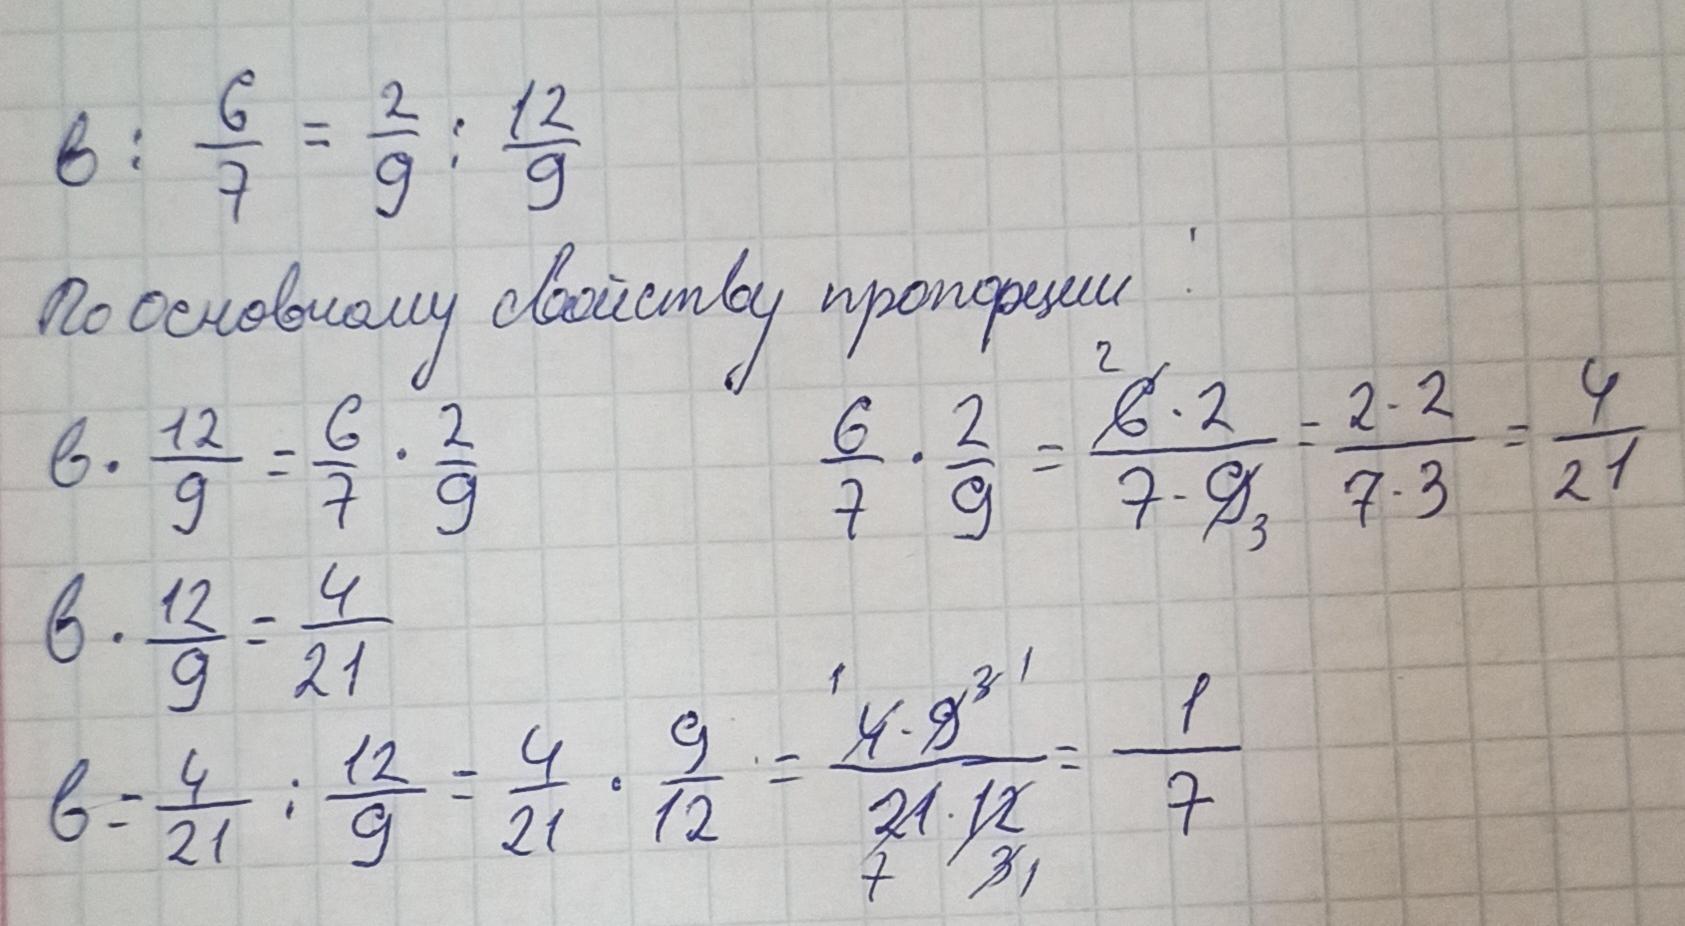 в : 6/7 = 2/9 : 12/9
По основному свойству пропорции :
в · 12/9 = 6/7 · 2/9
6/7 · 2/9 = 6·2/7·9 = 2·2/7·3 = 4/21
2
3
в · 12/9 = 4/21
в = 4/21 : 12/9 = 4/21 · 9/12 = 4·9/21·12 = 1/7
1 3 1
7 3 1